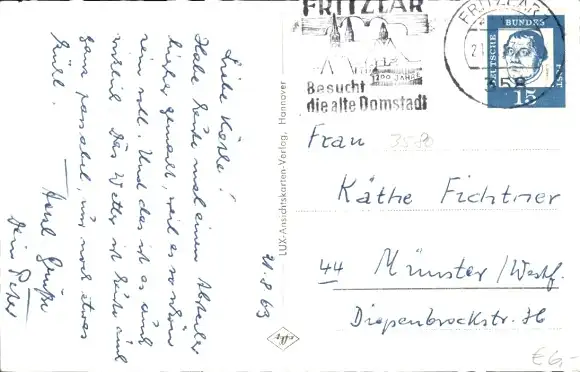 Liebe Käthe!
Habe heute mal einen Abstecher
hierher gemacht, weil es so schön
sein soll. Und das ist es auch
wirklich. Das Wetter ist heute auch
ganz passabel, nur noch etwas
kühl.
Herzl. Grüße
Dein Peter
21.8.63
LUX-Ansichtskarten-Verlag, Hannover
FRITZLAR
1200 JAHRE
Besucht
die alte Domstadt
FRITZLAR
358
DEUTSCHE BUNDESPOST
15
3580
Frau
Käthe Fichtner
44 Münster/Westf.
Diepenbrockstr. 36
€ 4,-